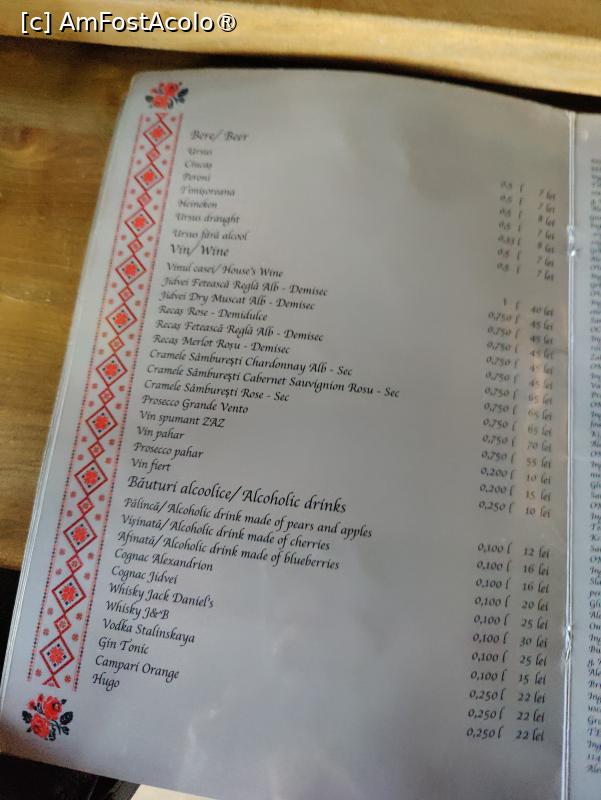 [c] AmFostAcolo®
Bere/ Beer
Ursus 0,5 l 7 lei
Ciucaș 0,5 l 7 lei
Peroni 0,5 l 8 lei
Timișoreana 0,5 l 7 lei
Heineken 0,33 l 8 lei
Ursus draught 0,5 l 7 lei
Ursus fără alcool 0,5 l 7 lei
Vin/ Wine
Vinul casei/ House's Wine 1 l 40 lei
Jidvei Fetească Reglă Alb - Demisec 0,750 l 45 lei
Jidvei Dry Muscat Alb - Demisec 0,750 l 45 lei
Recaș Rose - Demidulce 0,750 l 45 lei
Recaș Fetească Reglă Alb - Demisec 0,750 l 45 lei
Recaș Merlot Roșu - Demisec 0,750 l 45 lei
Cramele Sâmburești Chardonnay Alb - Sec 0,750 l 65 lei
Cramele Sâmburești Cabernet Sauvignion Rosu - Sec 0,750 l 65 lei
Cramele Sâmburești Rose - Sec 0,750 l 65 lei
Prosecco Grande Vento 0,750 l 70 lei
Vin spumant ZAZ 0,750 l 55 lei
Vin pahar 0,200 l 10 lei
Prosecco pahar 0,200 l 15 lei
Vin fiert 0,250 l 10 lei
Băuturi alcoolice/ Alcoholic drinks
Pălincă/ Alcoholic drink made of pears and apples 0,100 l 12 lei
Vișinată/ Alcoholic drink made of cherries 0,100 l 16 lei
Afinată/ Alcoholic drink made of blueberries 0,100 l 16 lei
Cognac Alexandrion 0,100 l 20 lei
Cognac Jidvei 0,100 l 25 lei
Whisky Jack Daniel's 0,100 l 30 lei
Whisky J&B 0,100 l 25 lei
Vodka Stalinskaya 0,100 l 15 lei
Gin Tonic 0,250 l 22 lei
Campari Orange 0,250 l 22 lei
Hugo 0,250 l 22 lei